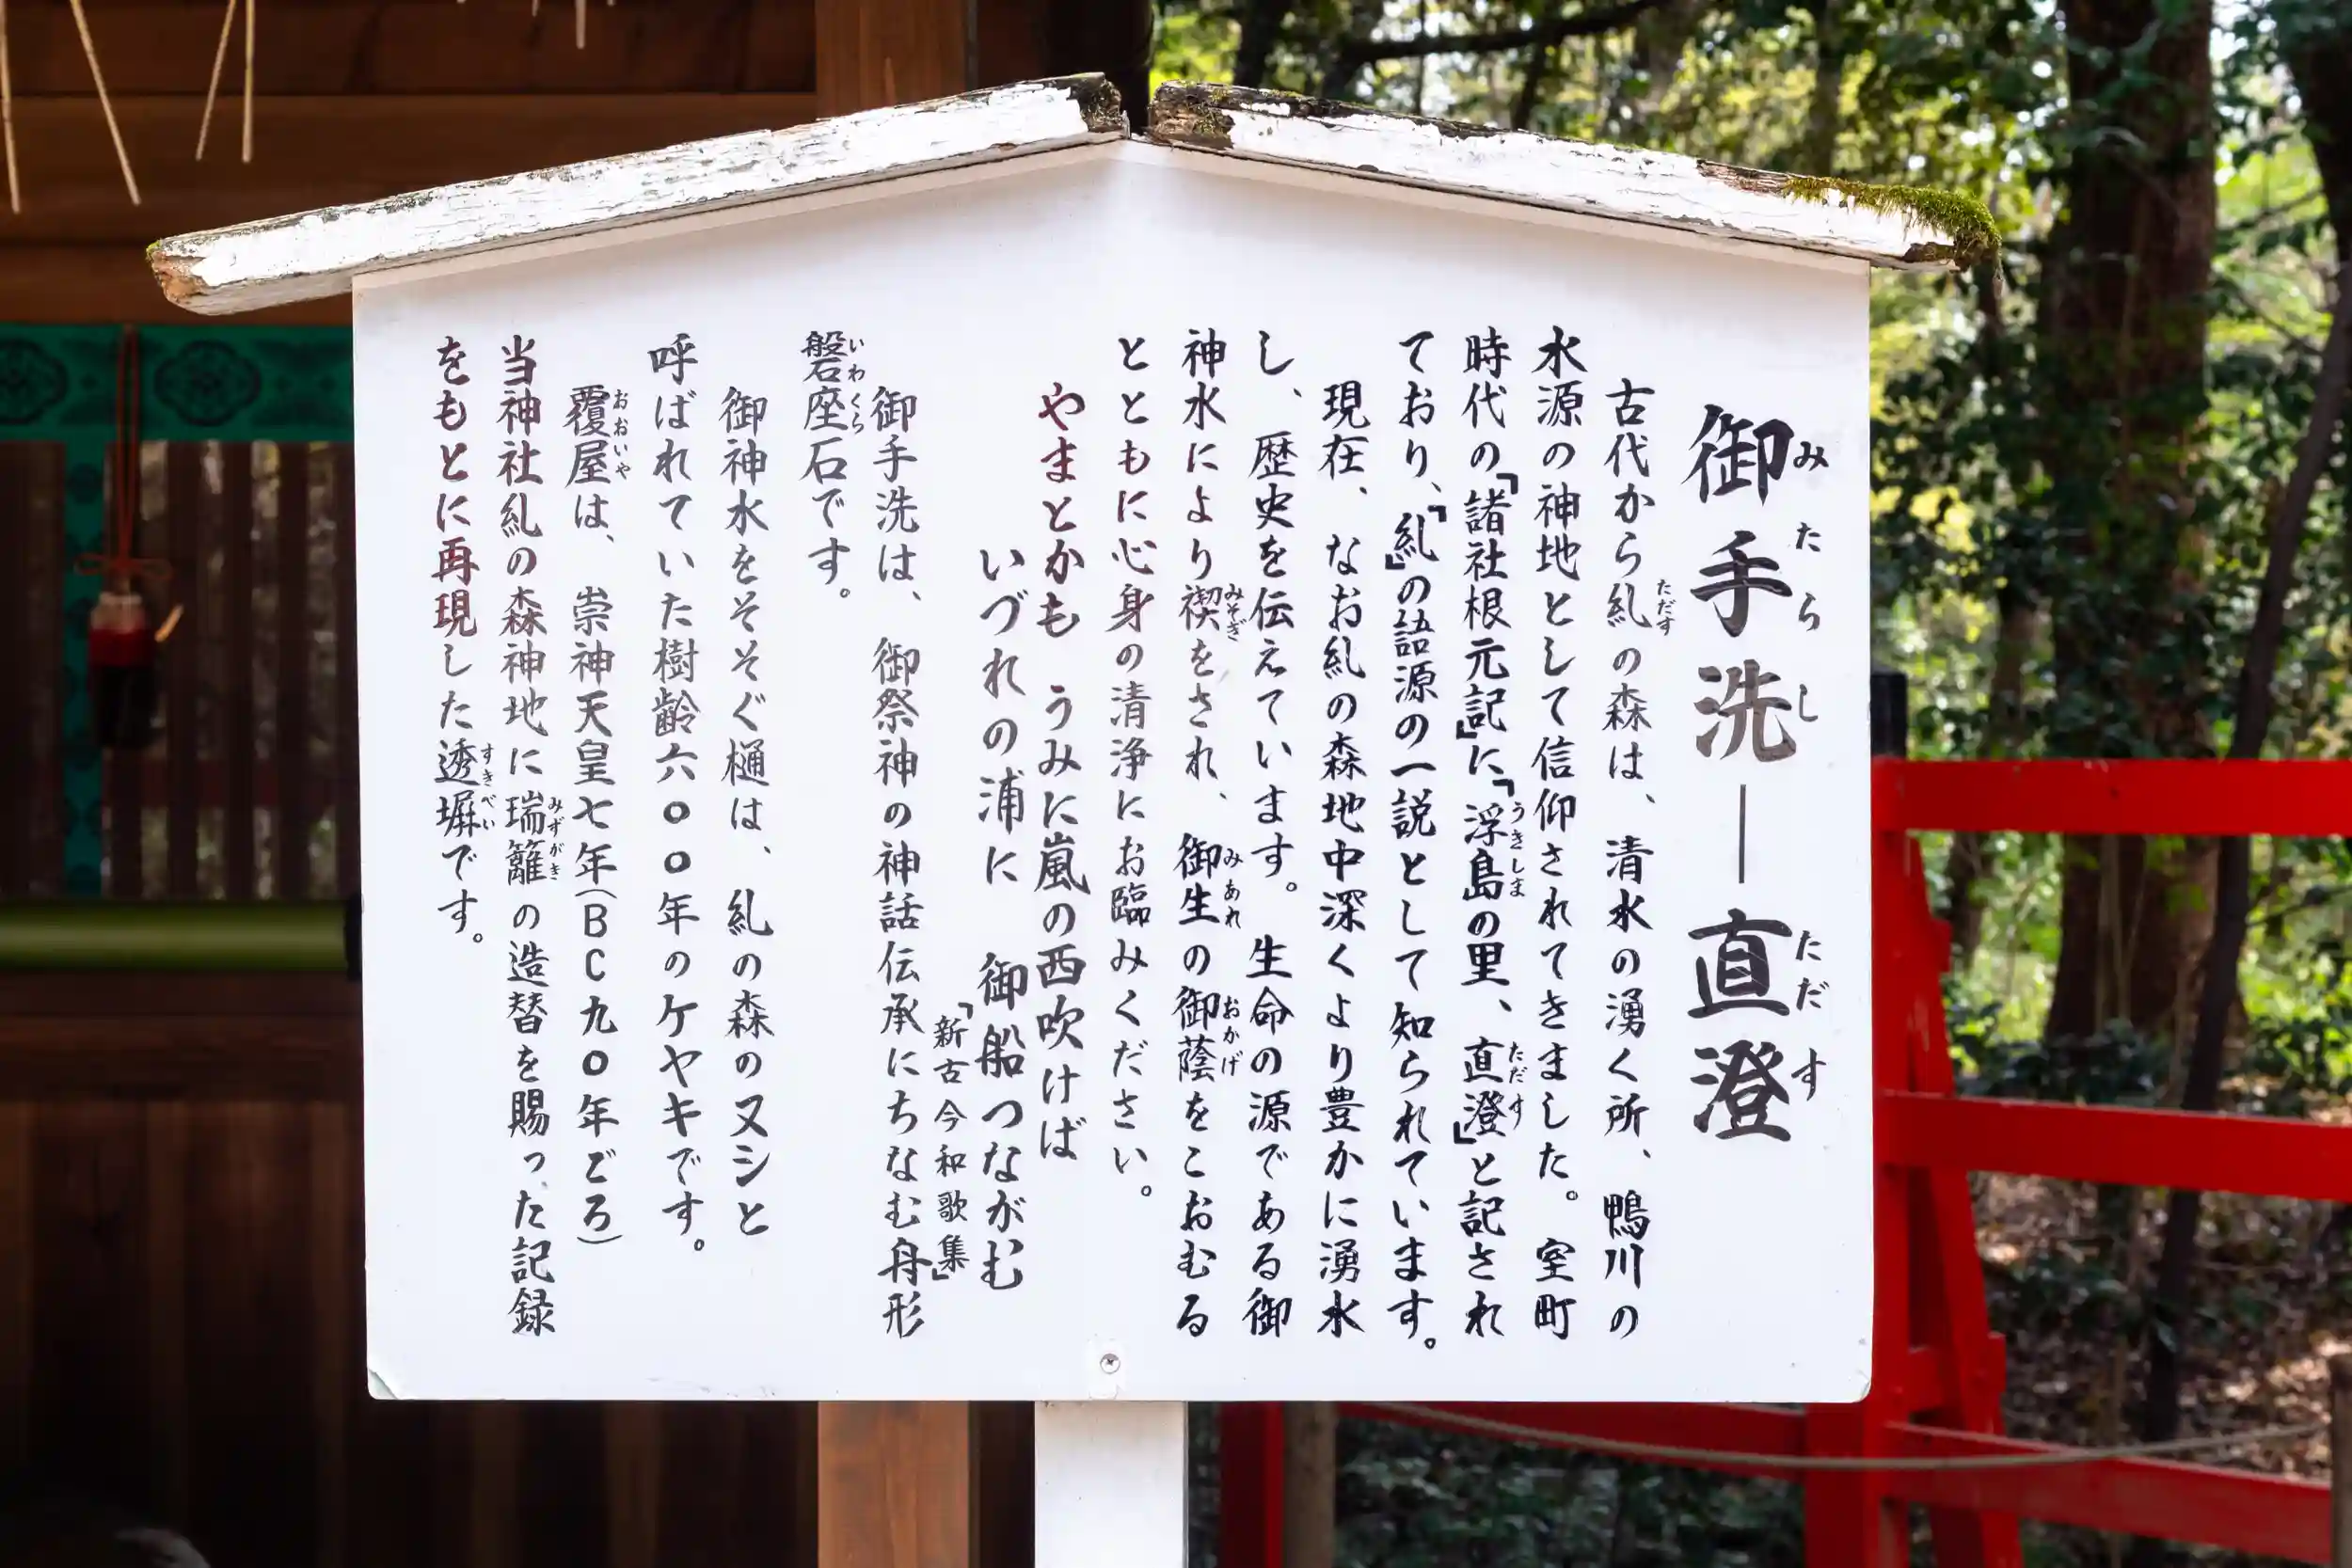 御手洗―直澄
みたらし ただす
古代から糺の森は、清水の湧く所、鴨川の
ただす
水源の神地として信仰されてきました。室町
時代の「諸社根元記」に、「浮島の里、直澄」と記され
うきしま ただす
ており、「糺」の語源の一説として知られています。
現在、なお糺の森地中深くより豊かに湧水
し、歴史を伝えています。生命の源である御
神水により禊をされ、御生の御蔭をこおむる
みそぎ みあれ おかげ
とともに心身の清浄にお臨みください。
やまとかも うみに嵐の西吹けば
いづれの浦に 御船つながむ
「新古今和歌集」
御手洗は、御祭神の神話伝承にちなむ舟形
磐座石です。
いわくら
御神水をそそぐ樋は、糺の森のヌシと
呼ばれていた樹齢六〇〇年のケヤキです。
覆屋は、崇神天皇七年(BC九〇年ごろ)
おおいや
当神社糺の森神地に瑞籬の造替を賜った記録
みずがき
をもとに再現した透塀です。
すきべい